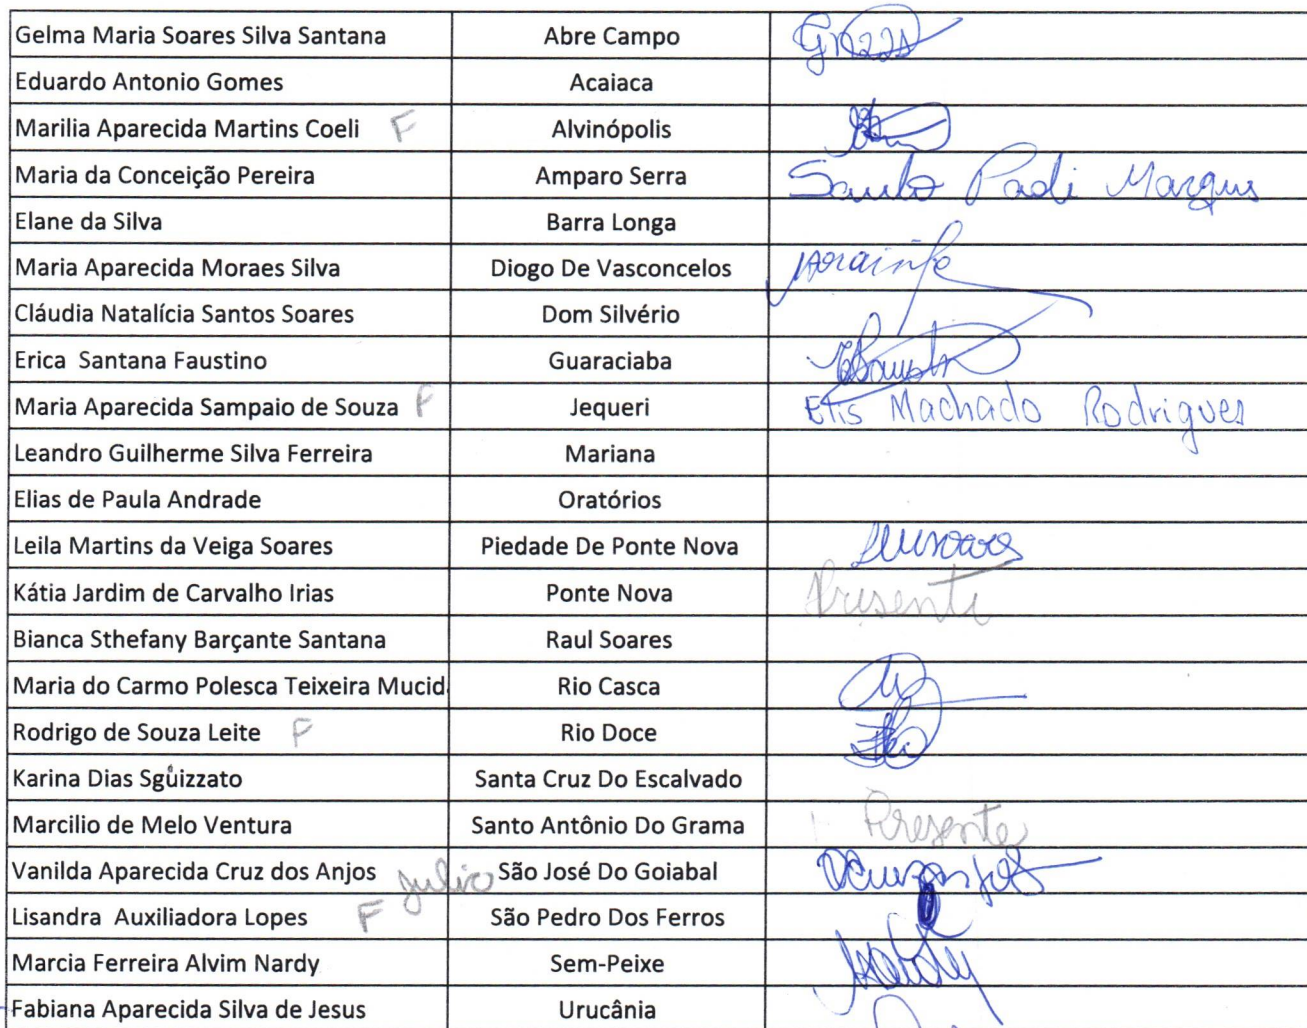 Gelma Maria Soares Silva Santana Abre Campo
Eduardo Antonio Gomes Acaiaca
Marilia Aparecida Martins Coeli F Alvinópolis
Maria da Conceição Pereira Amparo Serra Padi Marques
Elane da Silva Barra Longa
Maria Aparecida Moraes Silva Diogo De Vasconcelos
Cláudia Natalícia Santos Soares Dom Silvério
Erica Santana Faustino Guaraciaba
Maria Aparecida Sampaio de Souza F Jequeri Elis Machado Rodrigues
Leandro Guilherme Silva Ferreira Mariana
Elias de Paula Andrade Oratórios
Leila Martins da Veiga Soares Piedade De Ponte Nova
Kátia Jardim de Carvalho Irias Ponte Nova Presente
Bianca Sthefany Barçante Santana Raul Soares
Maria do Carmo Polesca Teixeira Mucid Rio Casca
Rodrigo de Souza Leite F Rio Doce
Karina Dias Sgüizzato Santa Cruz Do Escalvado
Marcilio de Melo Ventura Santo Antônio Do Grama Presente
Vanilda Aparecida Cruz dos Anjos Julio São José Do Goiabal
Lisandra Auxiliadora Lopes F São Pedro Dos Ferros
Marcia Ferreira Alvim Nardy Sem-Peixe
Fabiana Aparecida Silva de Jesus Urucânia